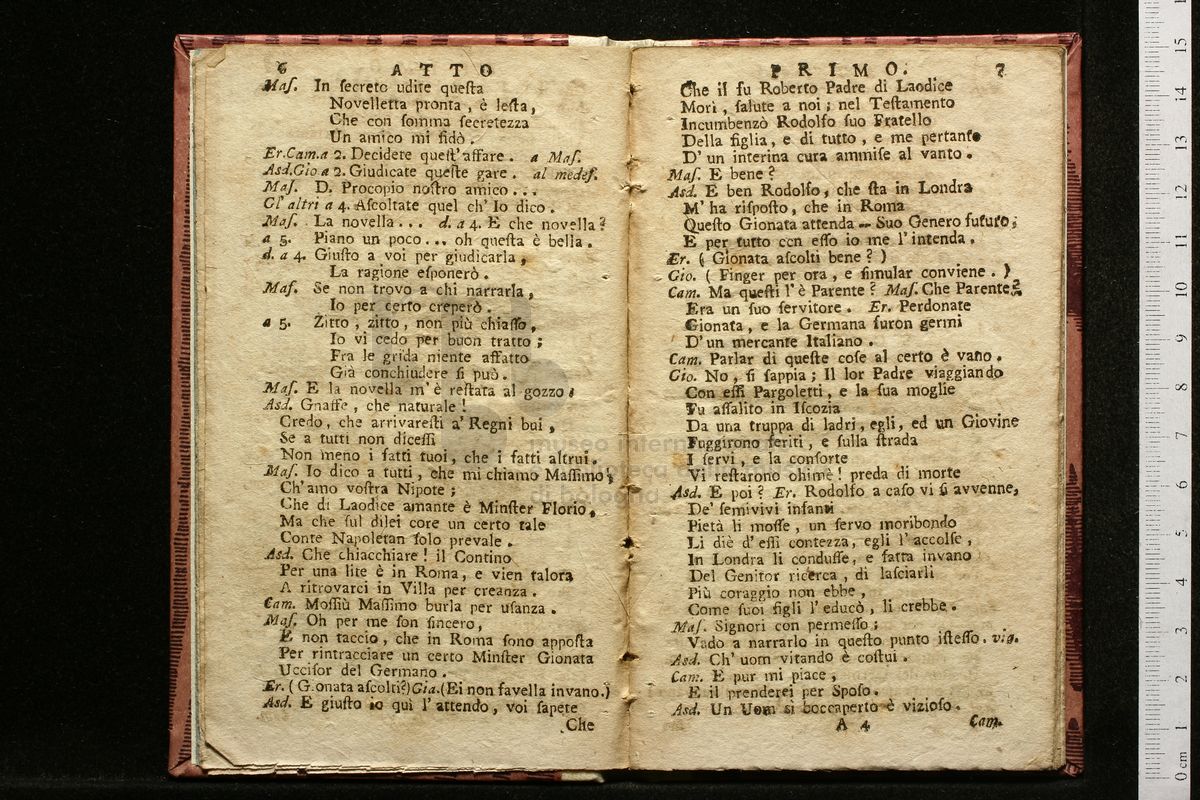 6 ATTO
Maſ. In ſecreto udite queſta
Novelletta pronta, è leſta,
Che con ſomma ſecretezza
Un amico mi fidò.
Er.Cam.a 2. Decidere queſt'affare. a Maſ.
Asd.Gio a 2. Giudicate queſte gare. al medeſ.
Maſ. D. Procopio noſtro amico...
Gl'altri a 4. Aſcoltate quel ch'Io dico.
Maſ. La novella... d. a 4. E che novella?
a 5. Piano un poco... oh queſta è bella.
d. a 4. Giuſto a voi per giudicarla,
La ragione eſponerò.
Maſ. Se non trovo a chi narrarla,
Io per certo creperò.
a 5. Zitto, zitto, non più chiaſſo,
Io vi cedo per buon tratto;
Fra le grida niente affatto
Già conchiudere ſi può.
Maſ. E la novella m'è reſtata al gozzo.
Asd. Gnaffe, che naturale!
Credo, che arrivareſti a' Regni bui,
Se a tutti non diceſſi
Non meno i fatti tuoi, che i fatti altrui.
Maſ. Io dico a tutti, che mi chiamo Maſſimo,
Ch'amo voſtra Nipote;
Che di Laodice amante è Minſter Florio,
Ma che ſul dilei core un certo tale
Conte Napoletan ſolo prevale.
Asd. Che chiacchiare! il Contino
Per una lite è in Roma, e vien talora
A ritrovarci in Villa per creanza.
Cam. Moſſiù Maſſimo burla per uſanza.
Maſ. Oh per me ſon ſincero,
E non taccio, che in Roma ſono appoſta
Per rintracciare un certo Minſter Gionata
Ucciſor del Germano.
Er. (G.onata aſcolti?) Gia. (Ei non favella invano.)
Asd. E giuſto io quì l'attendo, voi ſapete
Che
PRIMO. 7
Che il fu Roberto Padre di Laodice
Morì, ſalute a noi; nel Teſtamento
Incumbenzò Rodolfo ſuo Fratello
Della figlia, e di tutto, e me pertanto
D'un interina cura ammiſe al vanto.
Maſ. E bene?
Asd. E ben Rodolfo, che ſta in Londra
M'ha riſpoſto, che in Roma
Queſto Gionata attenda -- Suo Genero futuro;
E per tutto ccn eſſo io me l'intenda.
Er. (Gionata aſcolti bene?)
Gio. (Finger per ora, e ſimular conviene.)
Cam. Ma queſti l'è Parente? Maſ. Che Parente?
Era un ſuo ſervitore. Er. Perdonate
Gionata, e la Germana furon germi
D'un mercante Italiano.
Cam. Parlar di queſte coſe al certo è vano.
Gio. No, ſi ſappia; Il lor Padre viaggiando
Con eſſi Pargoletti, e la ſua moglie
Fu aſſalito in Iſcozia
Da una truppa di ladri, egli, ed un Giovine
Fuggirono feriti, e ſulla ſtrada
I ſervi, e la conſorte
Vi reſtarono ohimè! preda di morte
Asd. E poi? Er. Rodolfo a caſo vi ſi avvenne,
De' ſemivivi infanti
Pietà li moſſe, un ſervo moribondo
Li diè d'eſſi contezza, egli l'accolſe,
In Londra li conduſſe, e fatta invano
Del Genitor ricerca, di laſciarli
Più coraggio non ebbe,
Come ſuoi figli l'educò, li crebbe.
Maſ. Signori con permeſſo;
Vado a narrarlo in queſto punto iſteſſo. via.
Asd. Ch'uom vitando è coſtui.
Cam. E pur mi piace,
E il prenderei per Spoſo.
Asd. Un Uom sì boccaperto è vizioſo.
A 4 Cam.